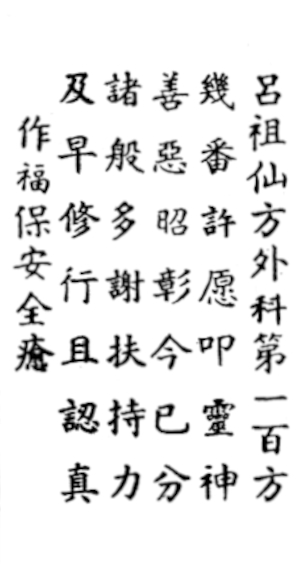 呂祖仙方外科第一百方
幾番許愿叩靈神
善惡昭彰今已分
諸般多謝扶持力
及早修行且認真
作福保安全癒